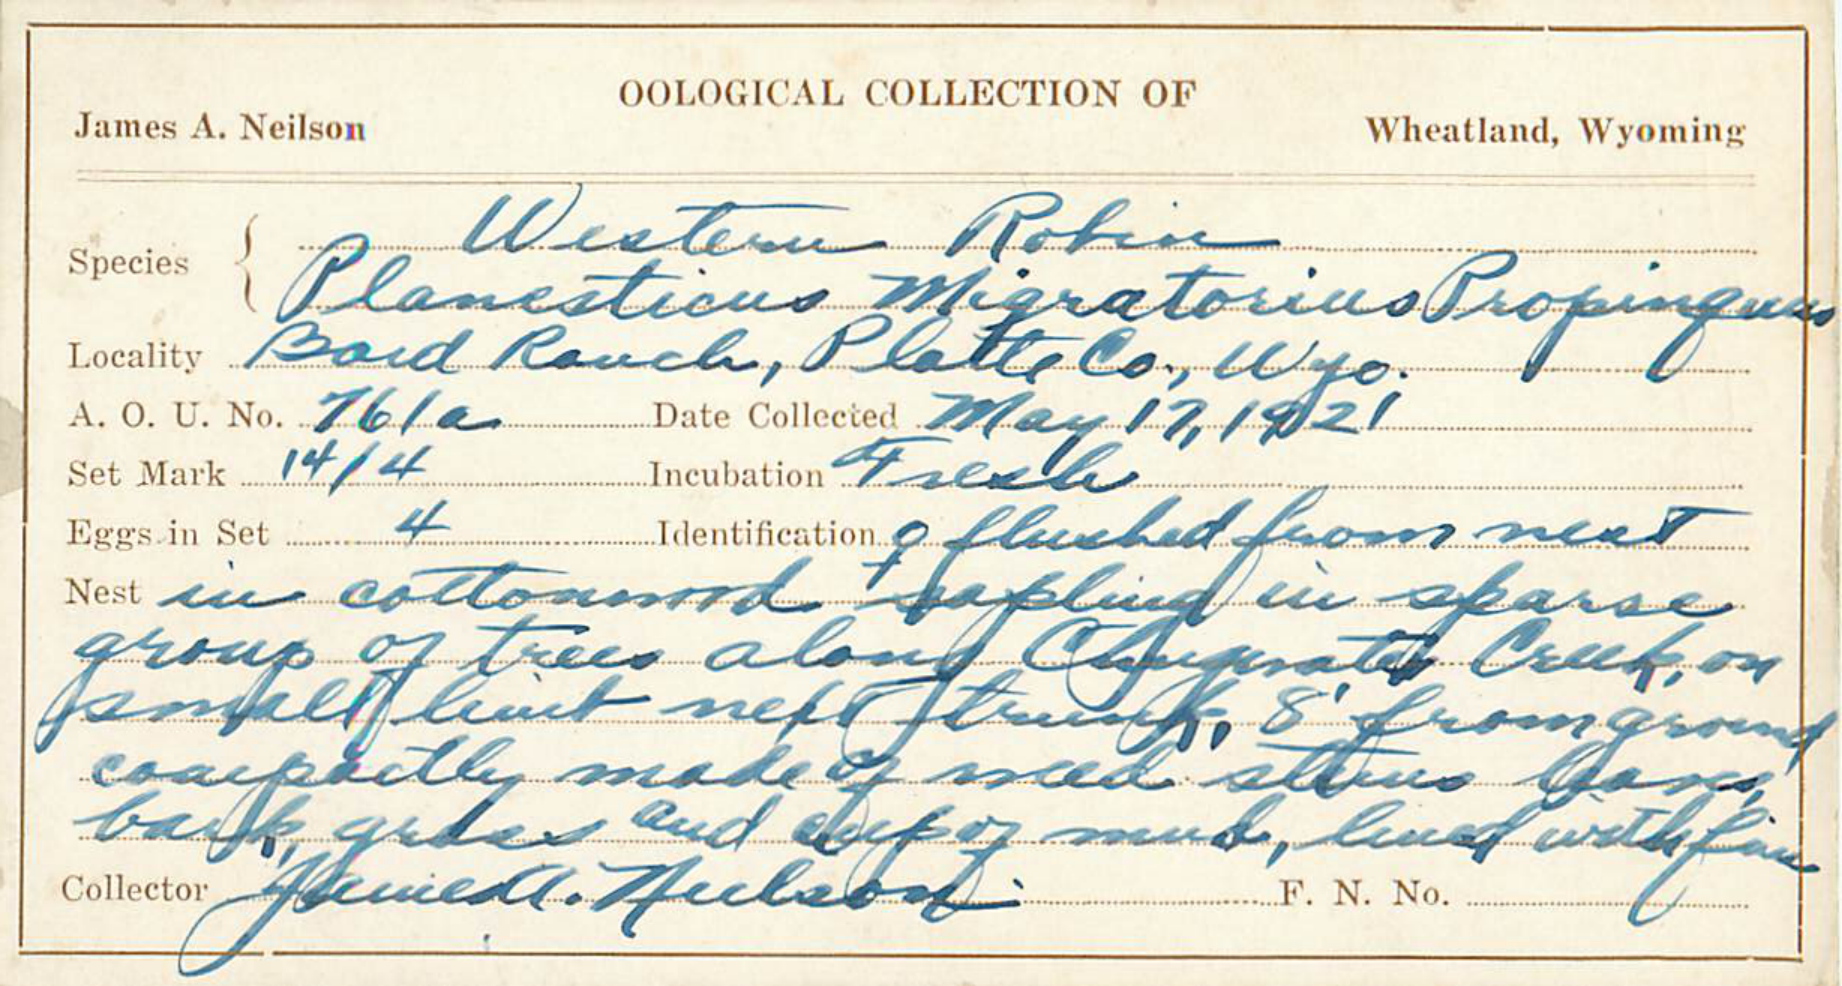 OOLOGICAL COLLECTION OF
James A. Neilson Wheatland, Wyoming
Species { Western Robin
Planesticus Migratorius Propinquus
Locality Bard Ranch, Platte Co., Wyo.
A. O. U. No. 761a Date Collected May 17, 1921
Set Mark 14/4 Incubation Fresh
Eggs in Set 4 Identification ♀ flushed from nest
Nest in cottonwood sapling in sparse
group of trees along Chugwater Creek, on
small limb next trunk, 8' from ground
compactly made of weed stems
bark, grass and cup of mud, lined with fine
Collector James A. Neilson. F. N. No.